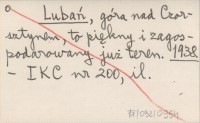 Lubań, góra nad Czor-
sztynem, to piękny i zagos-
podarowany już teren. 1938
- IKC nr 200, il.